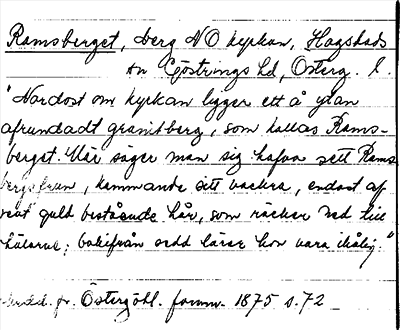 Ramsberget, berg NO kyrkan, Hagebads
sn Göstrings hd, Österg. l.
"Nordost om kyrkan ligger ett å ytan
afrundadt granitberg, som kallas Rams-
berget. Här säger man sig hafva sett Rams
bergsfrun, kammande sitt vackra, endast af
rent guld bestående hår, som räcker ned till
hälarne; bakifrån sedd lärer hon vara ihålig."
Medd. fr. Östergötl. fornm. 1875 s. 72